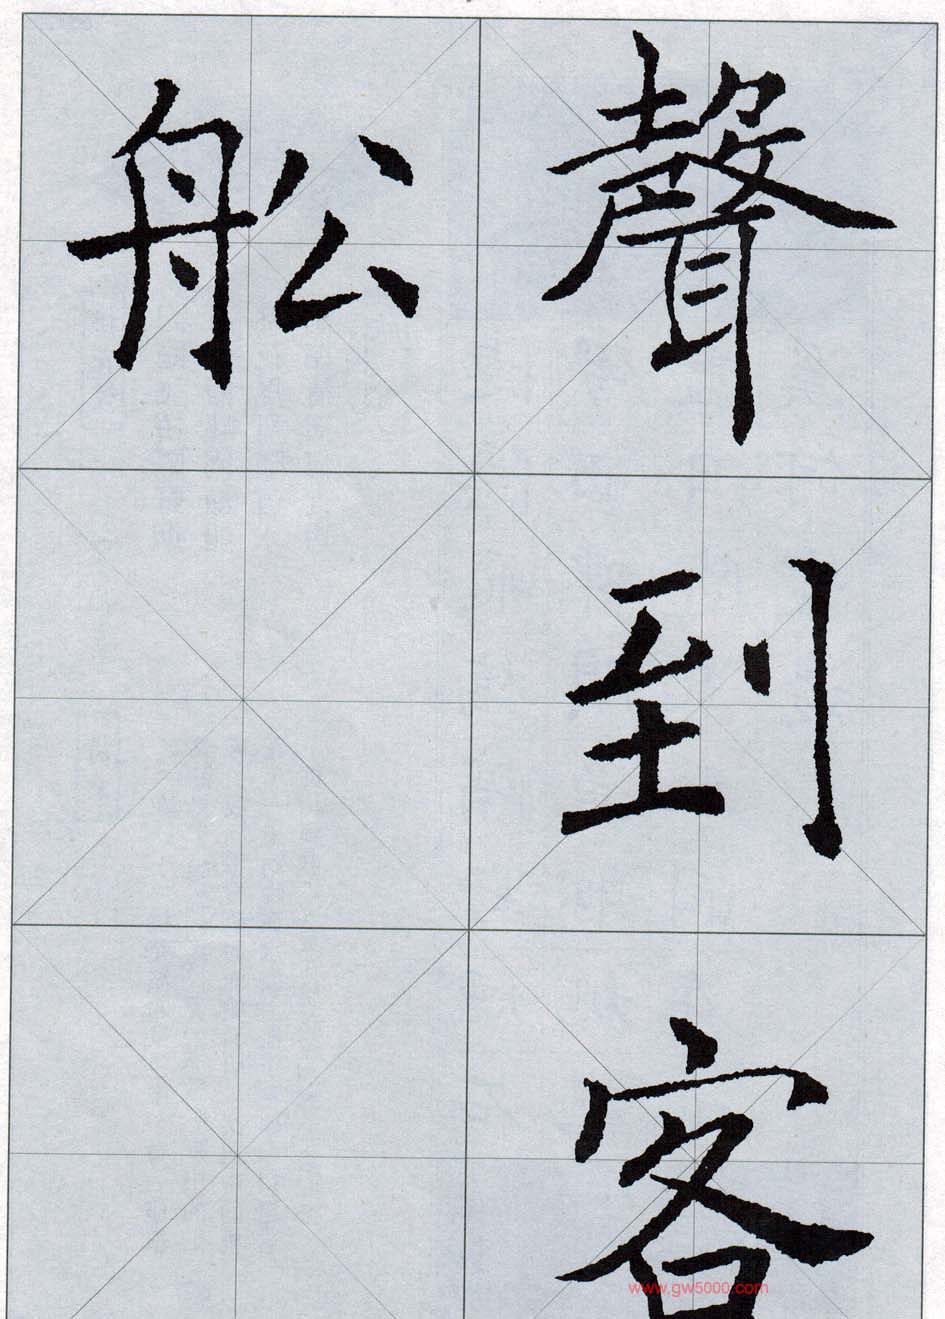 聲到客
舩
www.gw5000.com